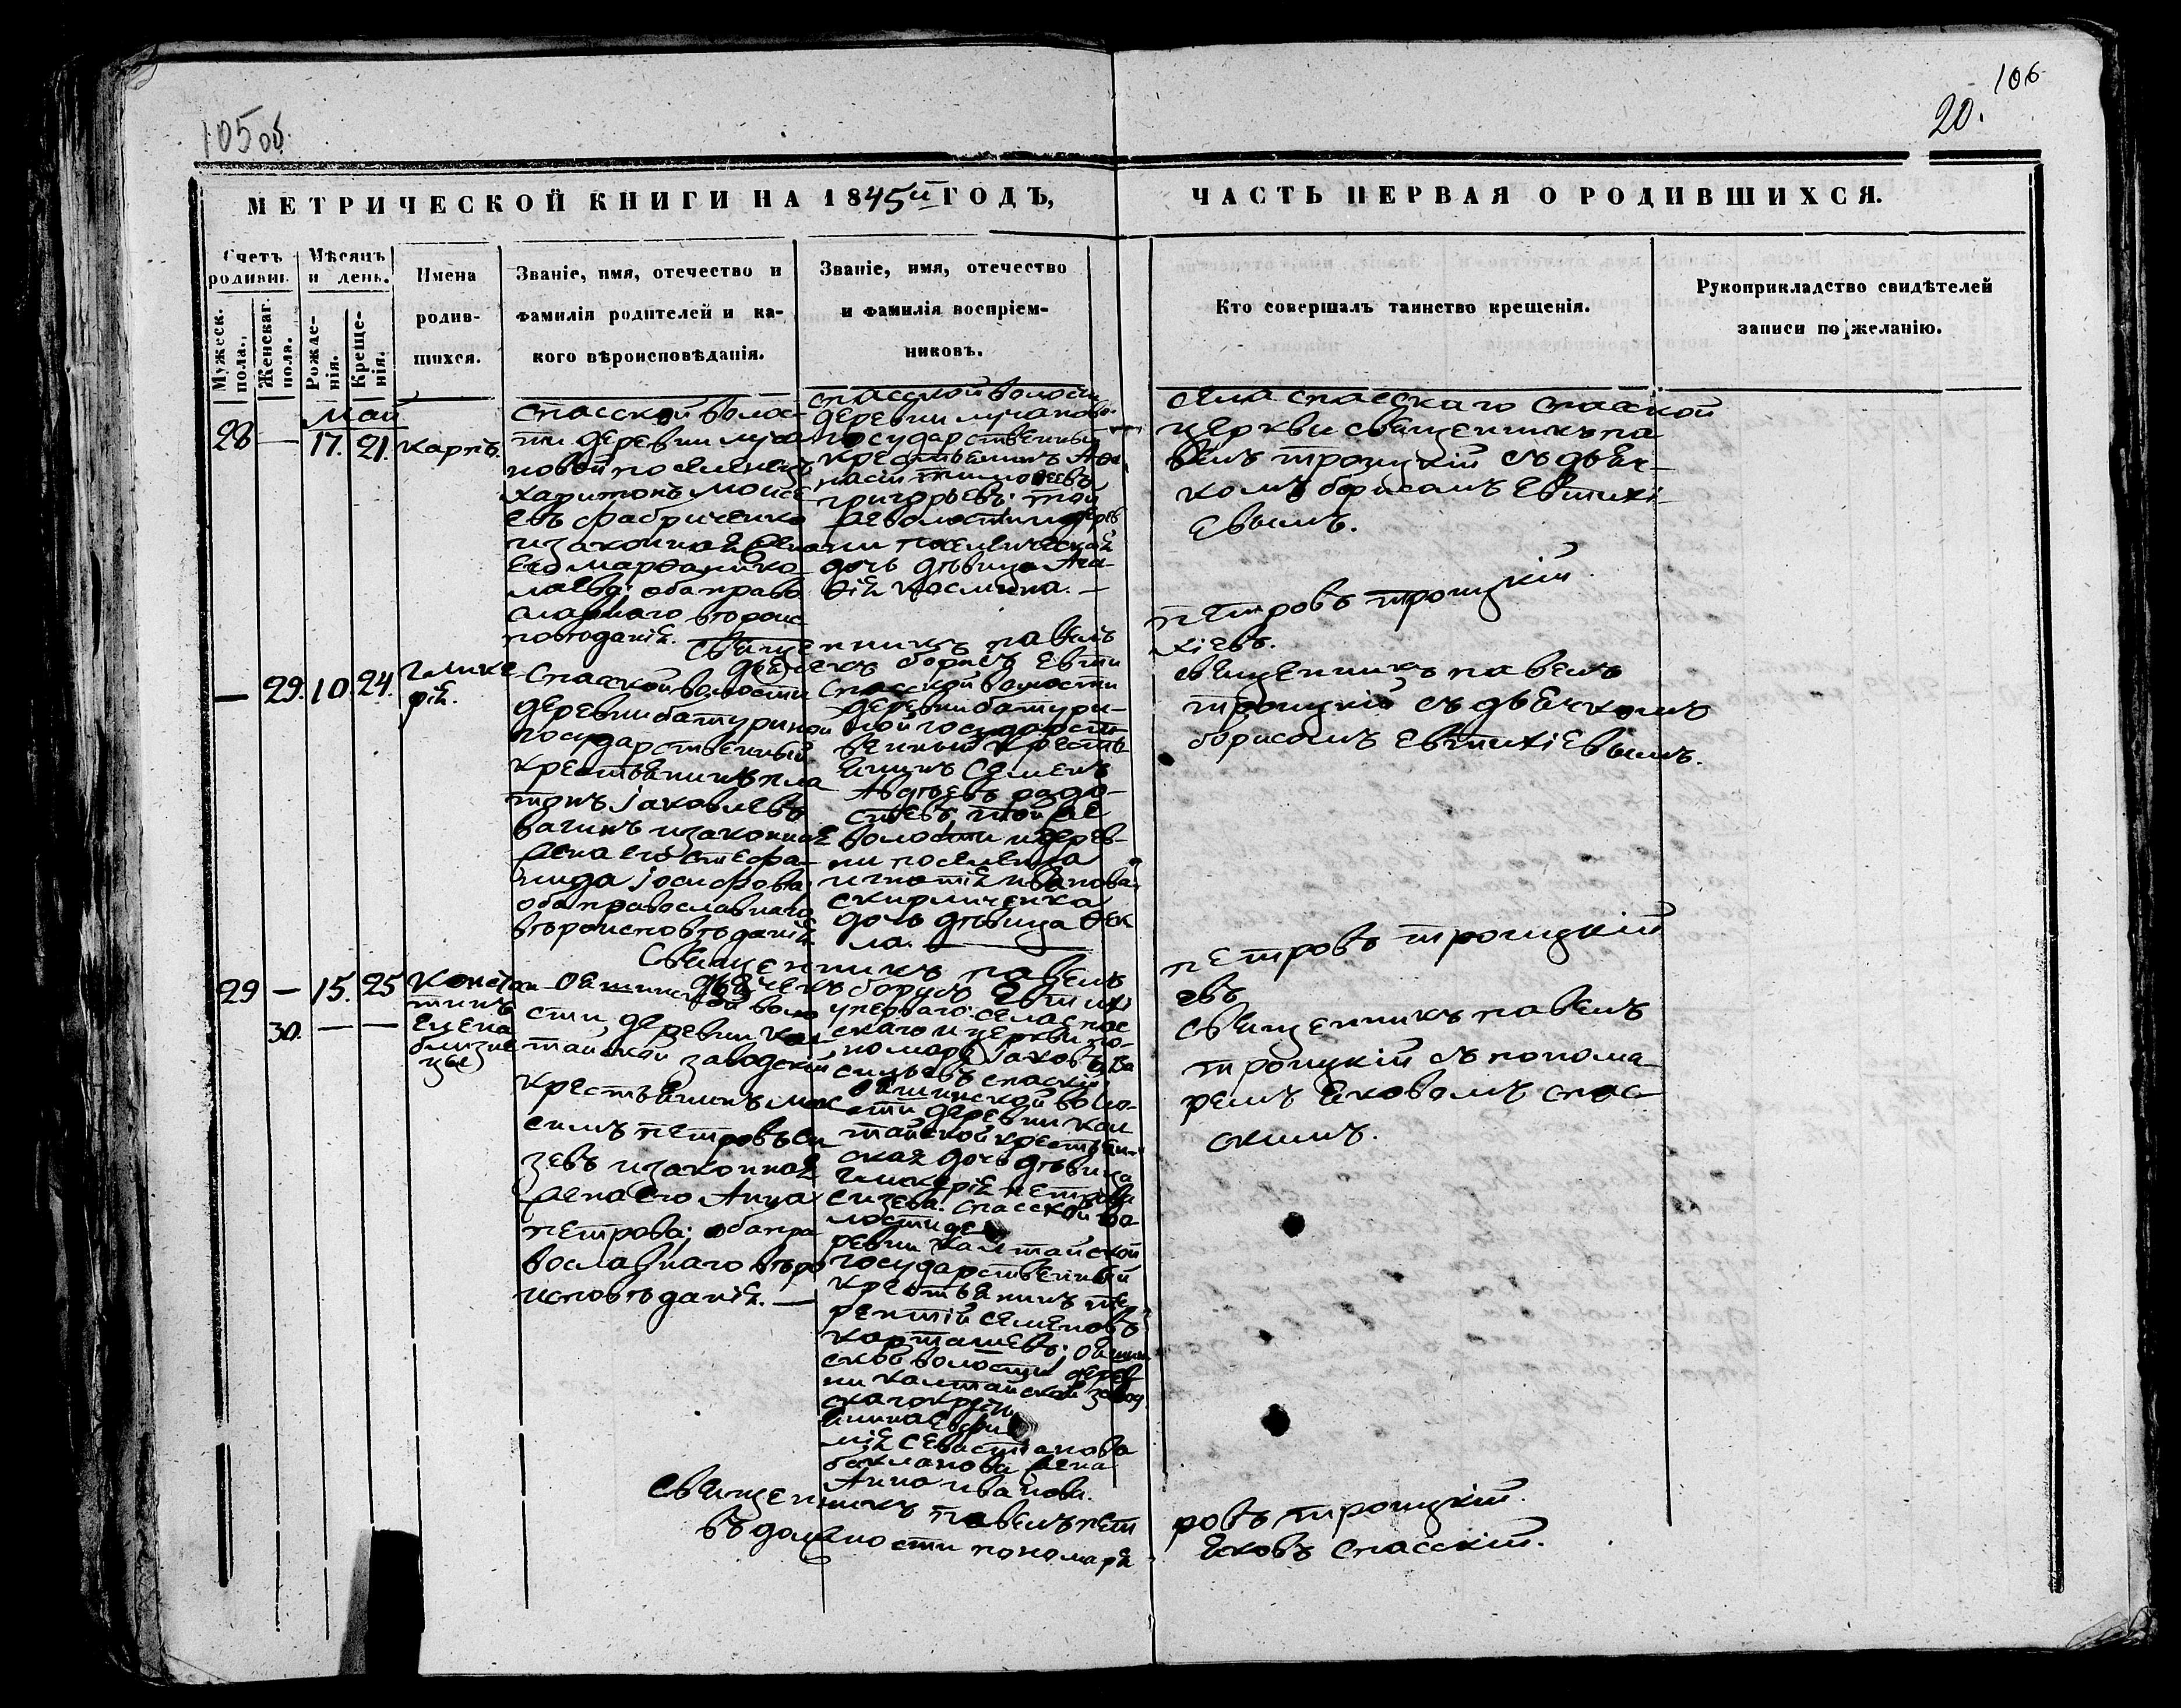 105 об.
106
20.
МЕТРИЧЕСКОЙ КНИГИ НА 1845й ГОДЪ,
ЧАСТЬ ПЕРВАЯ О РОДИВШИХСЯ.
Счетъ родивш.
Мужеск. пола.
Женскаг. пола.
Мѣсяцъ и день.
Рожде-
нія.
Креще-
нія.
Имена
родив-
шихся.
Званіе, имя, отечество и
фамилія родителей и ка-
кого вѣроисповѣданія.
Званіе, имя, отечество
и фамилія воспріем-
никовъ.
Кто совершалъ таинство крещенія.
Рукоприкладство свидѣтелей
записи по желанію.
Май
28 — 17. 21. Карпъ.
Спасской волос-
ти деревни луча
новой поселенецъ
Харитонъ Моисе
евъ Фабриченко
и законная жена
его Марѳа Нико
лаева; оба право
славнаго вѣроис
повѣданія.
Спасской волости
деревни лучаново
государственный
крестьянинъ Аѳа
насій тимоѳеевъ
григорьевъ; той
же волости и дерев
ни поселическая
дочь дѣвица Ага
ѳія космина. —
села спасскаго спасской
церкви священникъ па
велъ троицкій съ дьяч-
комъ борисомъ Евтихі-
евымъ.
Священникъ павелъ петровъ троицкій.
дьячекъ борисъ Евти хіевъ.
— 29. 10. 24. Глике
рія.
Спасской волости
деревни батуриной
государственный
крестьянинъ пла
тонъ Іаковлевъ
вагинъ и законная
жена его стефа-
нида Іосифова;
оба православнаго
вѣроисповѣданія
Спасской волости
деревни батури-
ной государст-
венный кресть
янинъ Семенъ
Авдѣевъ
той же
волости и дерев-
ни поселенца
игнатія иванова
дочь дѣвица Ѳек
ла. —
священникъ павелъ
троицкій съ дьячкомъ
борисомъ Евтихіевымъ.
Священникъ павелъ петровъ троицкій
дьячекъ борисъ Евтихі евъ
29 — 15. 25 Констан
тинъ
30. — — Елена
близне
цы
Ояшинской воло
сти, деревни кал
тайской заводскій
крестьянинъ Мак
симъ петровъ си
зевъ и законная
жена его Анна
петрова; оба пра
вославнаго вѣро
исповѣданія. —
у перваго: села спас
скаго и церкви по-
номарь Іаковъ Ва
сильевъ спаскій;
Ояшинской воло-
сти деревни кал
тайской крестьян-
ская дочь дѣвица
Гликерія петрова
сизева. Спасской во
лости де
ревни калтайской
государственный
крестьянинъ те
рентій семеновъ
карташевъ; Ояшин
ской волости дерев
ни калтайской завод
скаго кресть
янина Евфи
мія Севастьянова
бакланова жена
Анна иванова.
священникъ павелъ
троицкій съ понома
ремъ Яковомъ спас-
скимъ.
Священникъ павелъ пет ровъ троицкій.
въ должности пономаря Яковъ Спасскій.